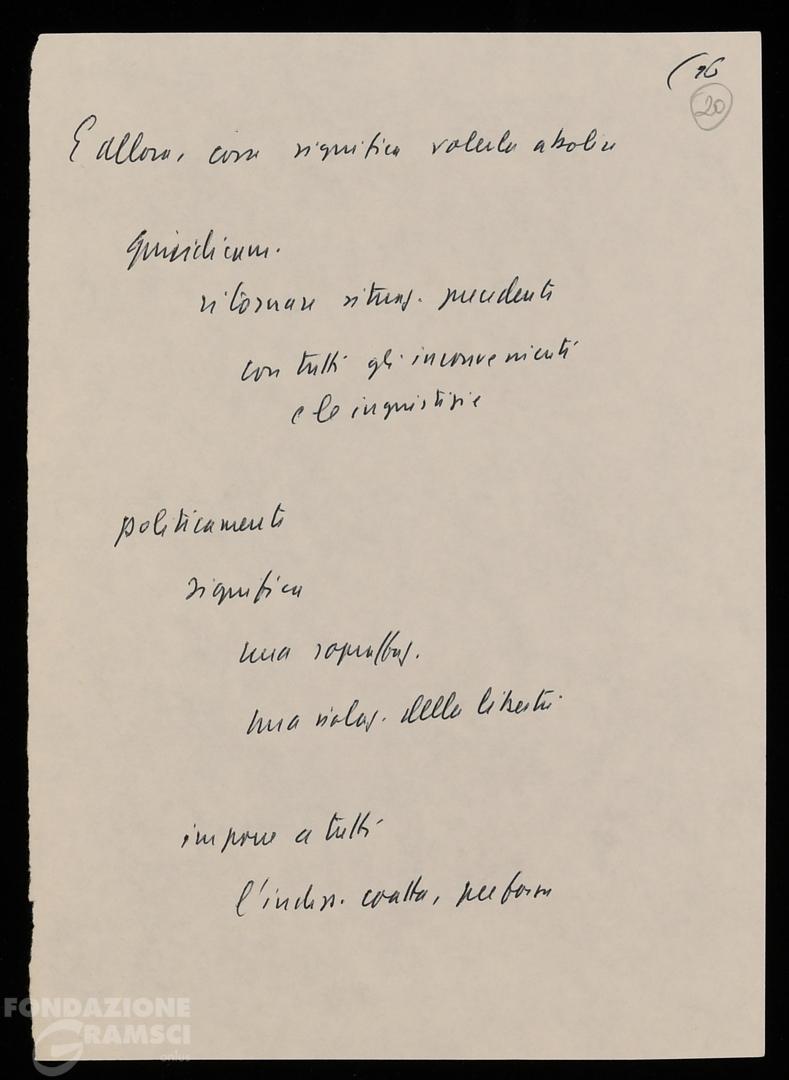 (16
20
E allora, cosa significa volerla abolire
giuridicam.
ritornare situaz. precedente
con tutti gli inconvenienti
e le ingiustizie
politicamente
significa
una sopraffaz.
una violaz. della libertà
imporre a tutti
l'indiss. coatta, per forza
FONDAZIONE
GRAMSCI
onlus